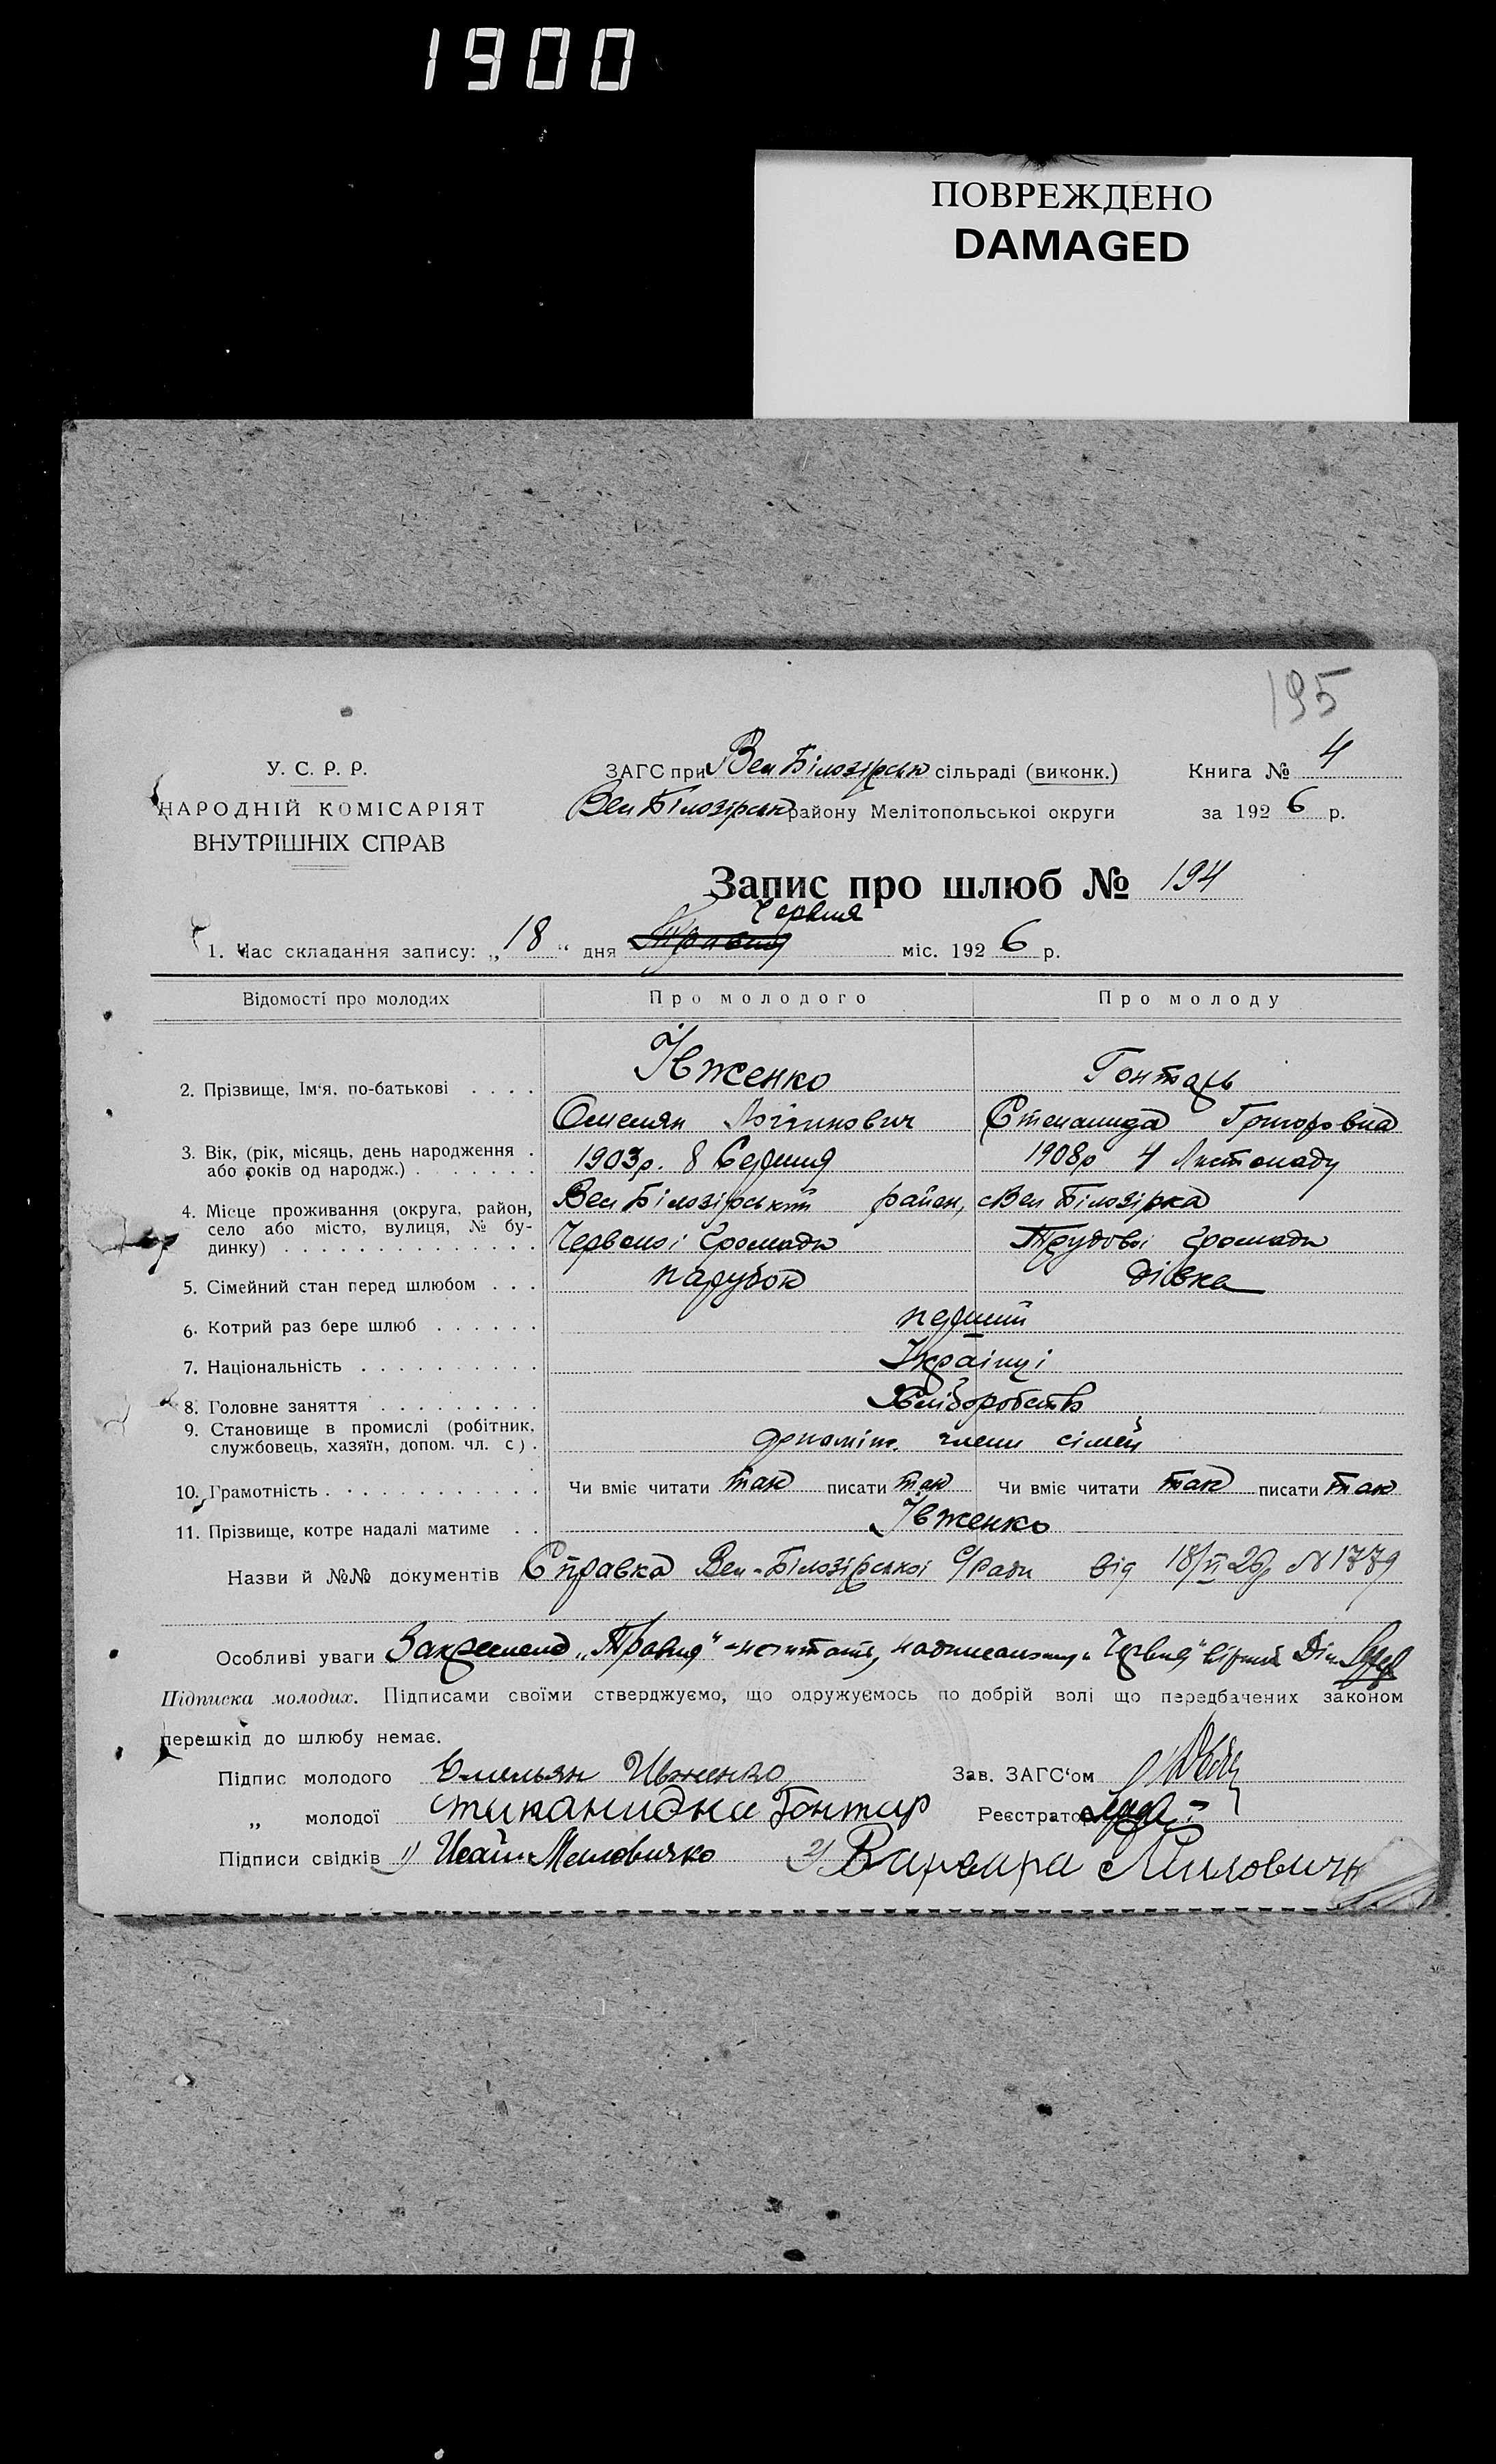 1900
ПОВРЕЖДЕНО
DAMAGED
195
У. С. Р. Р.
НАРОДНІЙ КОМІСАРІЯТ
ВНУТРІШНІХ СПРАВ
ЗАГС при Вел Білозірськ сільраді (виконк.)
Вел Білозірськ району Мелітопольської округи
Книга № 4
за 1926 р.
Запис про шлюб № 194
Червня
1. Час складання запису: „18“ дня Травня міс. 1926 р.
Відомості про молодих Про молодого Про молоду
2. Прізвище, Ім‘я, по-батькові . . . . Івженко Гонтарь
Омелян Логинович Степанида Григоровна
3. Вік, (рік, місяць, день народження .
або років од народж.) . . . . . . . 1903р. 8 Серпня 1908р 4 Листопаду
4. Місце проживання (округа, район,
село або місто, вулиця, № бу-
динку) . . . . . . . . . . . . . .
Вел Білозірський район, с Вел Білозірка
Червоноі громади Трудовоі громади
5. Сімейний стан перед шлюбом . . . парубок дівка
6. Котрий раз бере шлюб . . . . . . перший
7. Національність . . . . . . . . . . Украінці
8. Головне заняття . . . . . . . . . Хліборобств
9. Становище в промислі (робітник,
службовець, хазяїн, допом. чл. с) . члени сімей
10. Грамотність . . . . . . . . . . . . Чи вміє читати так писати так Чи вміє читати так писати так
11. Прізвище, котре надалі матиме . . Івженко
Назви й №№ документів Справка Вел-Білозірськоі С/ради від 18/VI 26р N 1779
Особливі уваги Закреслено „Травня“ - не читати, надписаному „Червня“ вірити Діл.
Підписка молодих. Підписами своїми стверджуємо, що одружуємось по добрій волі що передбачених законом
перешкід до шлюбу немає.
Підпис молодого Емельян Ивженко Зав. ЗАГС‘ом
„ молодої Стипанидка Гонтар Реєстратор
Підписи свідків 1) Исай Миловичко 2) Варвара Милович